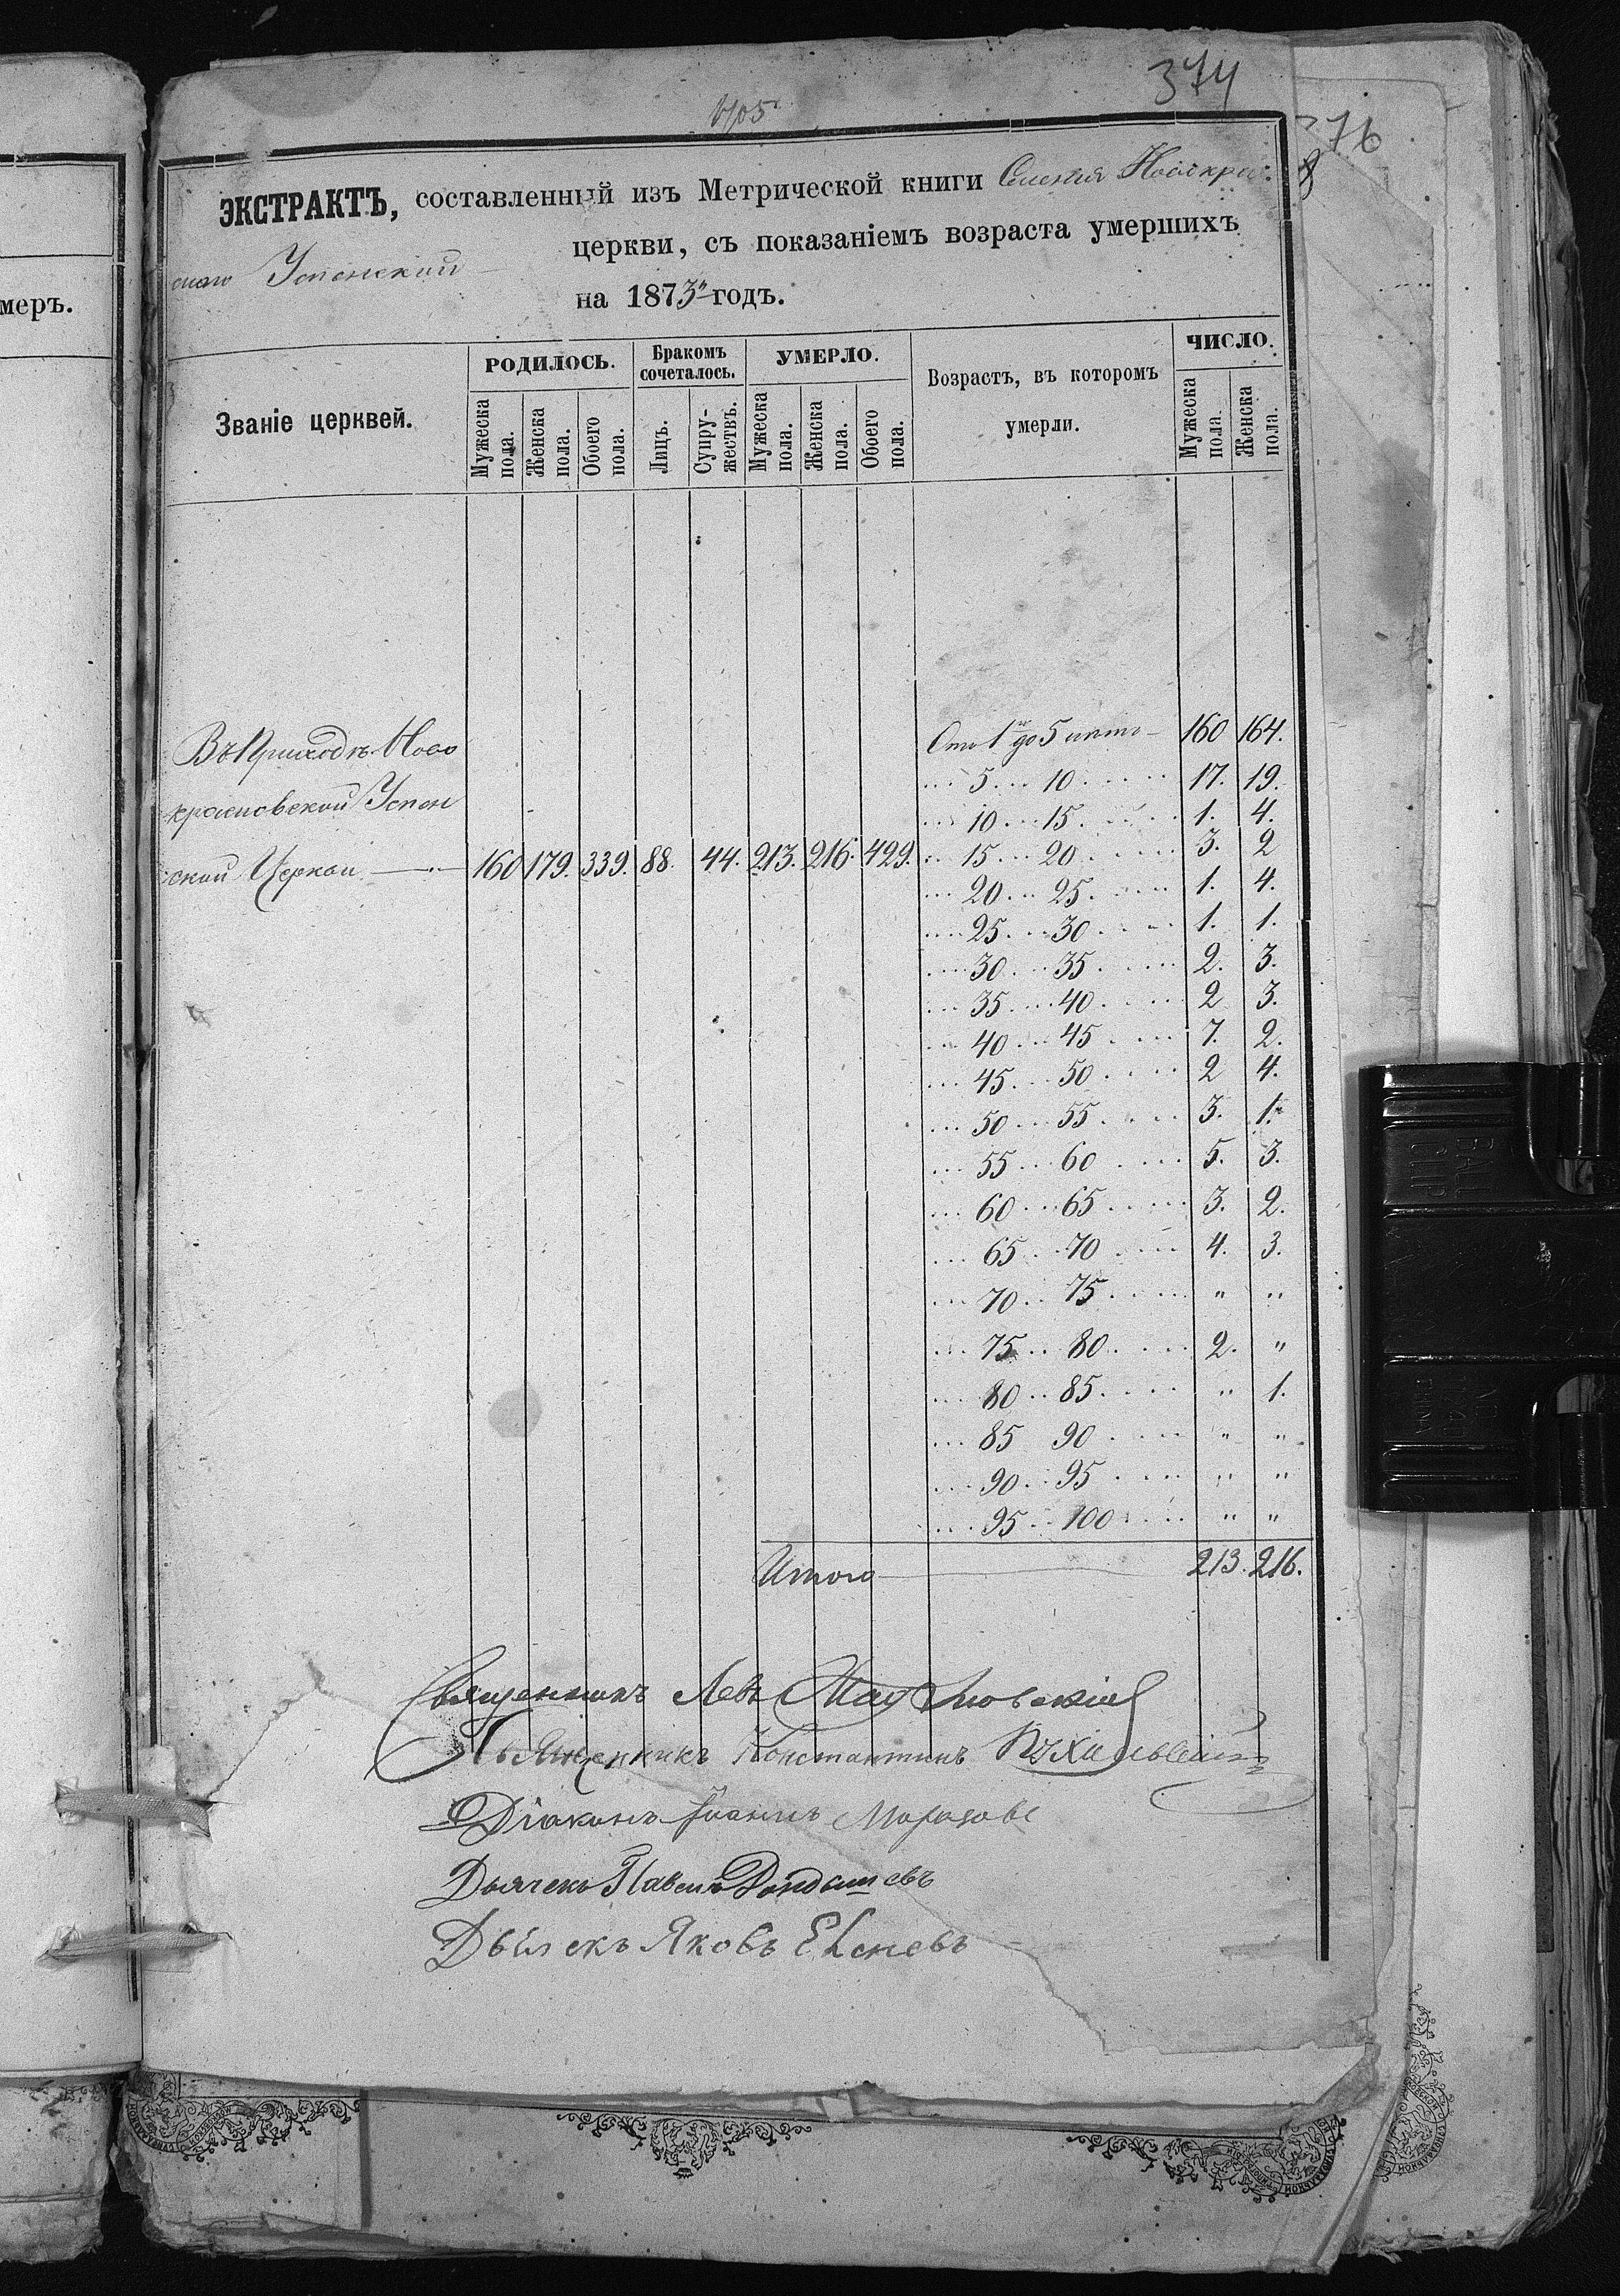 374
405
76
меръ.
ЭКСТРАКТЪ, составленный изъ Метрической книги Селенія Новокра-
снаго Успенской церкви, съ показаніемъ возраста умершихъ
на 1873й годъ.
Званіе церквей.
РОДИЛОСЬ.
Бракомъ сочеталось.
УМЕРЛО.
Возрастъ, въ которомъ умерли.
ЧИСЛО.
Мужеска пола.
Женска пола.
Обоего пола.
Лицъ.
Супружествъ.
Мужеска пола.
Женска пола.
Обоего пола.
Мужеска пола.
Женска пола.
Въ Приходѣ Ново
красновской Успен
ской Церкви 160 179. 339. 88. 44. 213. 216. 429.
Отъ 1го до 5 лѣтъ 160 164.
5 10 17. 19.
10 15 1. 4.
15 20 3. 2
20 25 1. 4.
25 30 1. 1.
30 35 2. 3.
35 40 2 3.
40 45 7. 2.
45 50 2 4.
50 55 3. 1.
55 60 5. 3.
60 65 3. 2.
65 70 4. 3.
70 75 " "
75 80 2. "
80 85 " 1.
85 90 " "
90 95 " "
95 100 " "
Итого 213. 216.
Священникъ Левъ
Священникъ Константинъ
Діаконъ Іоаннъ Морозовъ
Дьячекъ Павелъ
Дьячекъ Яковъ